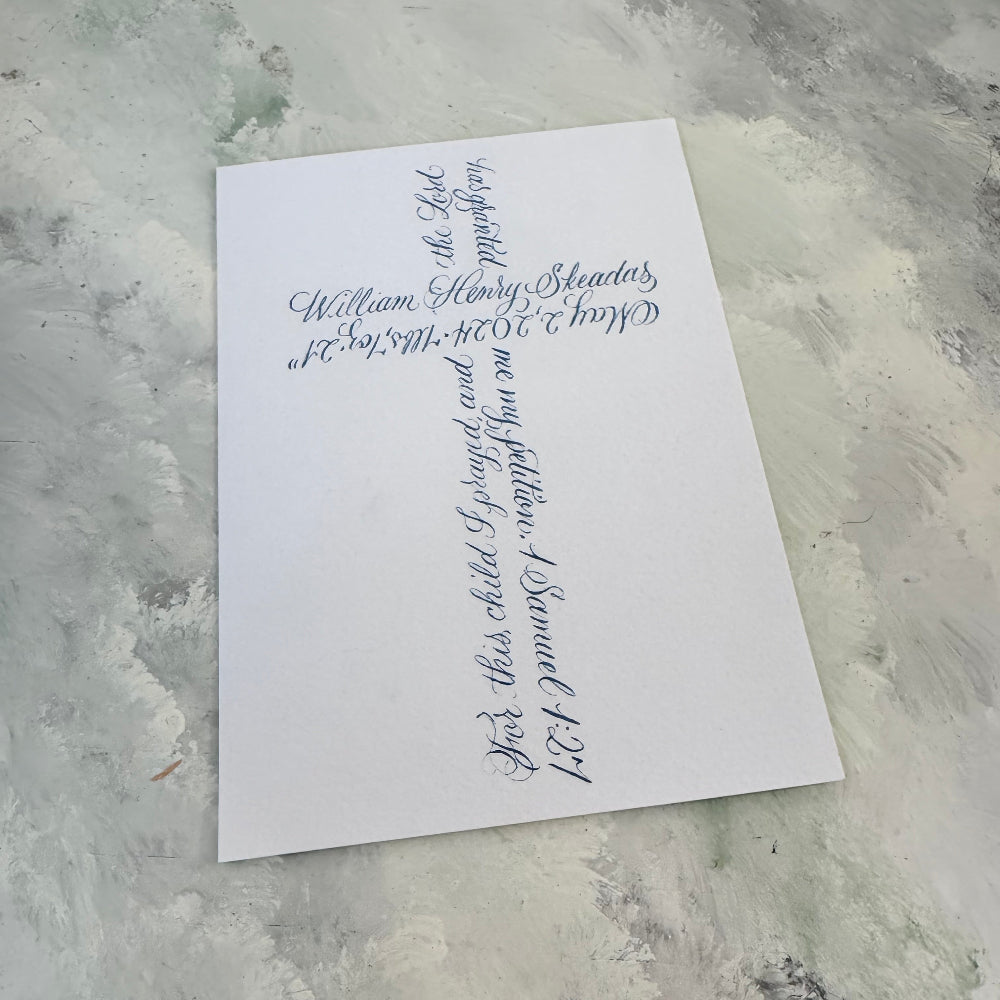 For this child I prayed and
the Lord
has granted
me my petition. 1 Samuel 1:27
William Henry Skeadas
May 2, 2024 · 7lbs, 7oz · 21"